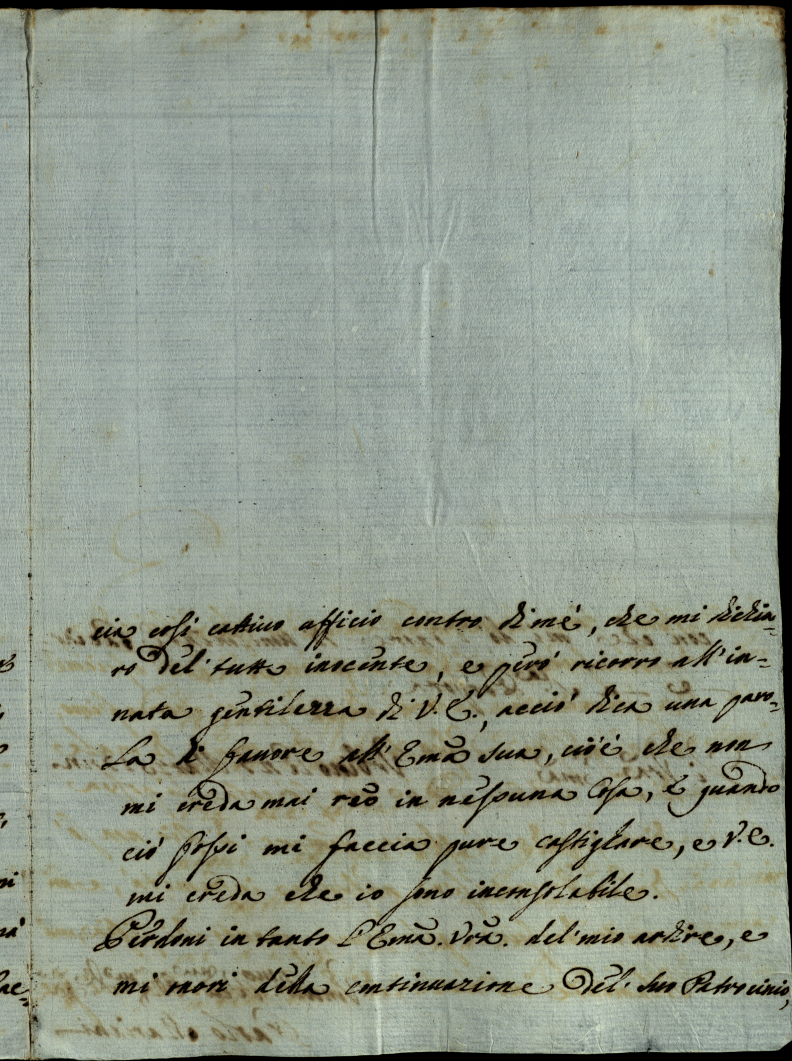 cia cosi cattivo afficio contro di mé, che mi dichia-
ro del' tutto inocente, e peró ricorro all' in=
nata gentilezza di V. E., acció dica una paro-
la di favore all' Emã sua, ció é che non
mi creda mai reo in nessuna Cosa, e quando
ció fossi mi faccia pure castighare, e V. E.
mi creda che io sono inconsolabile.
Perdoni in tanto l' Emã. Vrã. del' mio ardire, e
mi onori della continuazione del' suo Patrocinio,